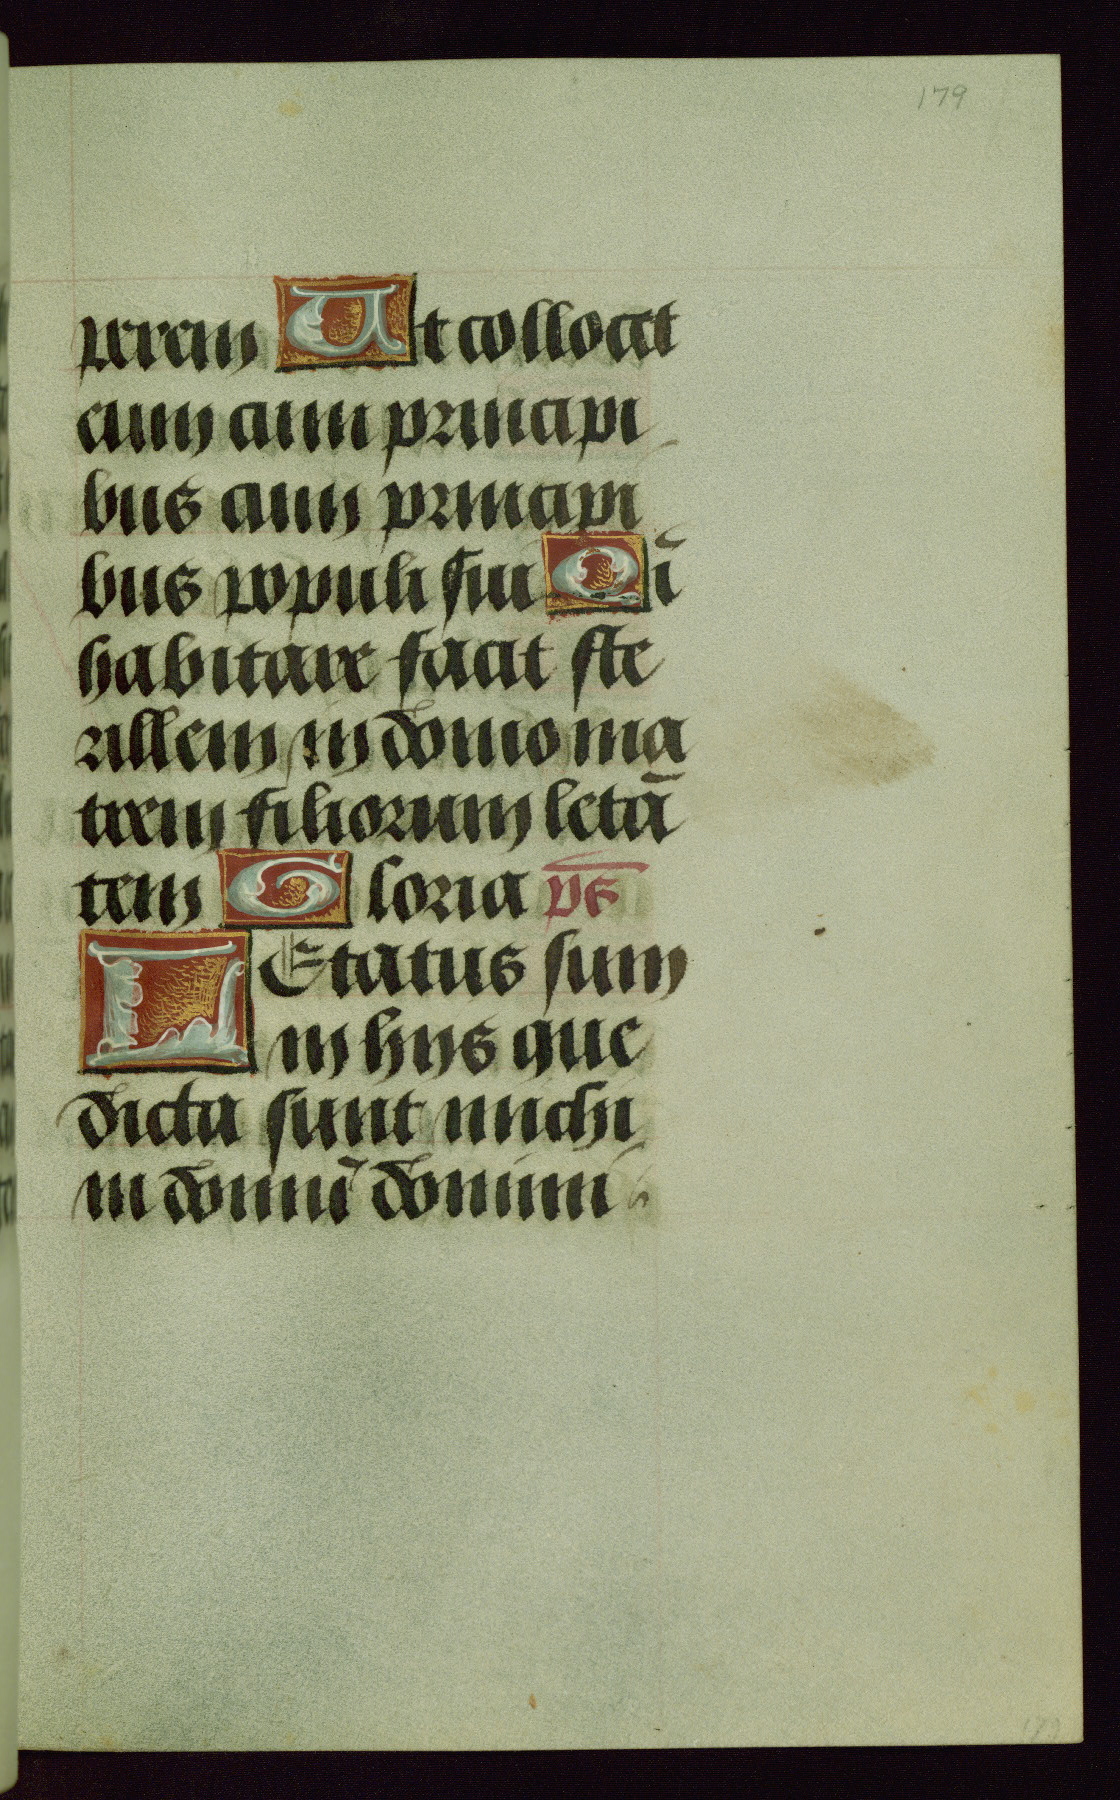 179
perem Ut collocet
eum cum principi
bus cum principi
bus populi sui Qui
habitare facit ste
rillem in domo ma
trem filiorum letã
tem Gloria ps
LEtatus sum
in hijs que
dicta sunt michi
in domũ domini